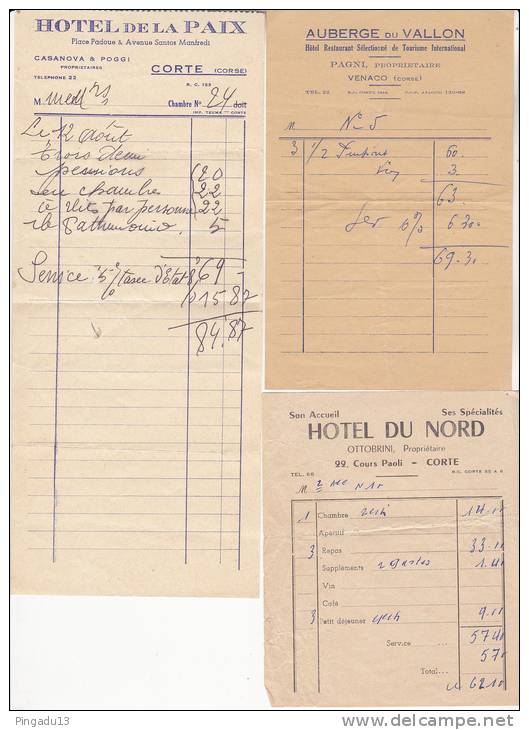 HOTEL DE LA PAIX
Place Padoue & Avenue Santos Manfredi
CASANOVA & POGGI
PROPRIETAIRES
TELEPHONE 22
CORTE (CORSE)
R. C. 125
M Chambre N° 24 doit
IMP. TEUMA - CORTE
Le 12 Août
trois demi
pensions 20
une chambre 22
à lits par personne 22
5
69
Service 15% taxe d'Etat 8% 15,87
84,87
AUBERGE DU VALLON
Hôtel Restaurant Sélectionné de Tourisme International
PAGNI, PROPRIETAIRE
VENACO (CORSE)
TEL. 22
M N° 5
3 1/2 60.
3.
63.
Ser 10% 6.30
69.30
Son Accueil Ses Spécialités
HOTEL DU NORD
OTTOBRINI, Propriétaire
22, Cours Paoli - CORTE
TEL. 66
M
1 Chambre
Apéritif
3 Repas 33.00
Suppléments
Vin
Café
3 Petit déjeuner 9.00
5740
Service 570
Total
6210
Pingadu13
delcampe.net